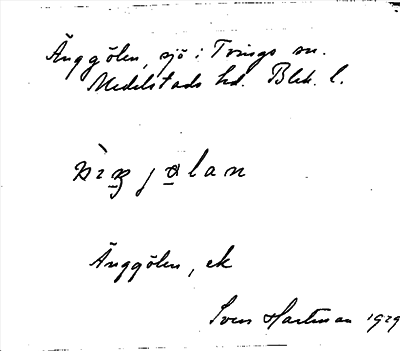 Änggölen, sjö i Tvings sn.
Medelstads hd. Blek. l.
Änggölen, ek
Sven Hartman 1929